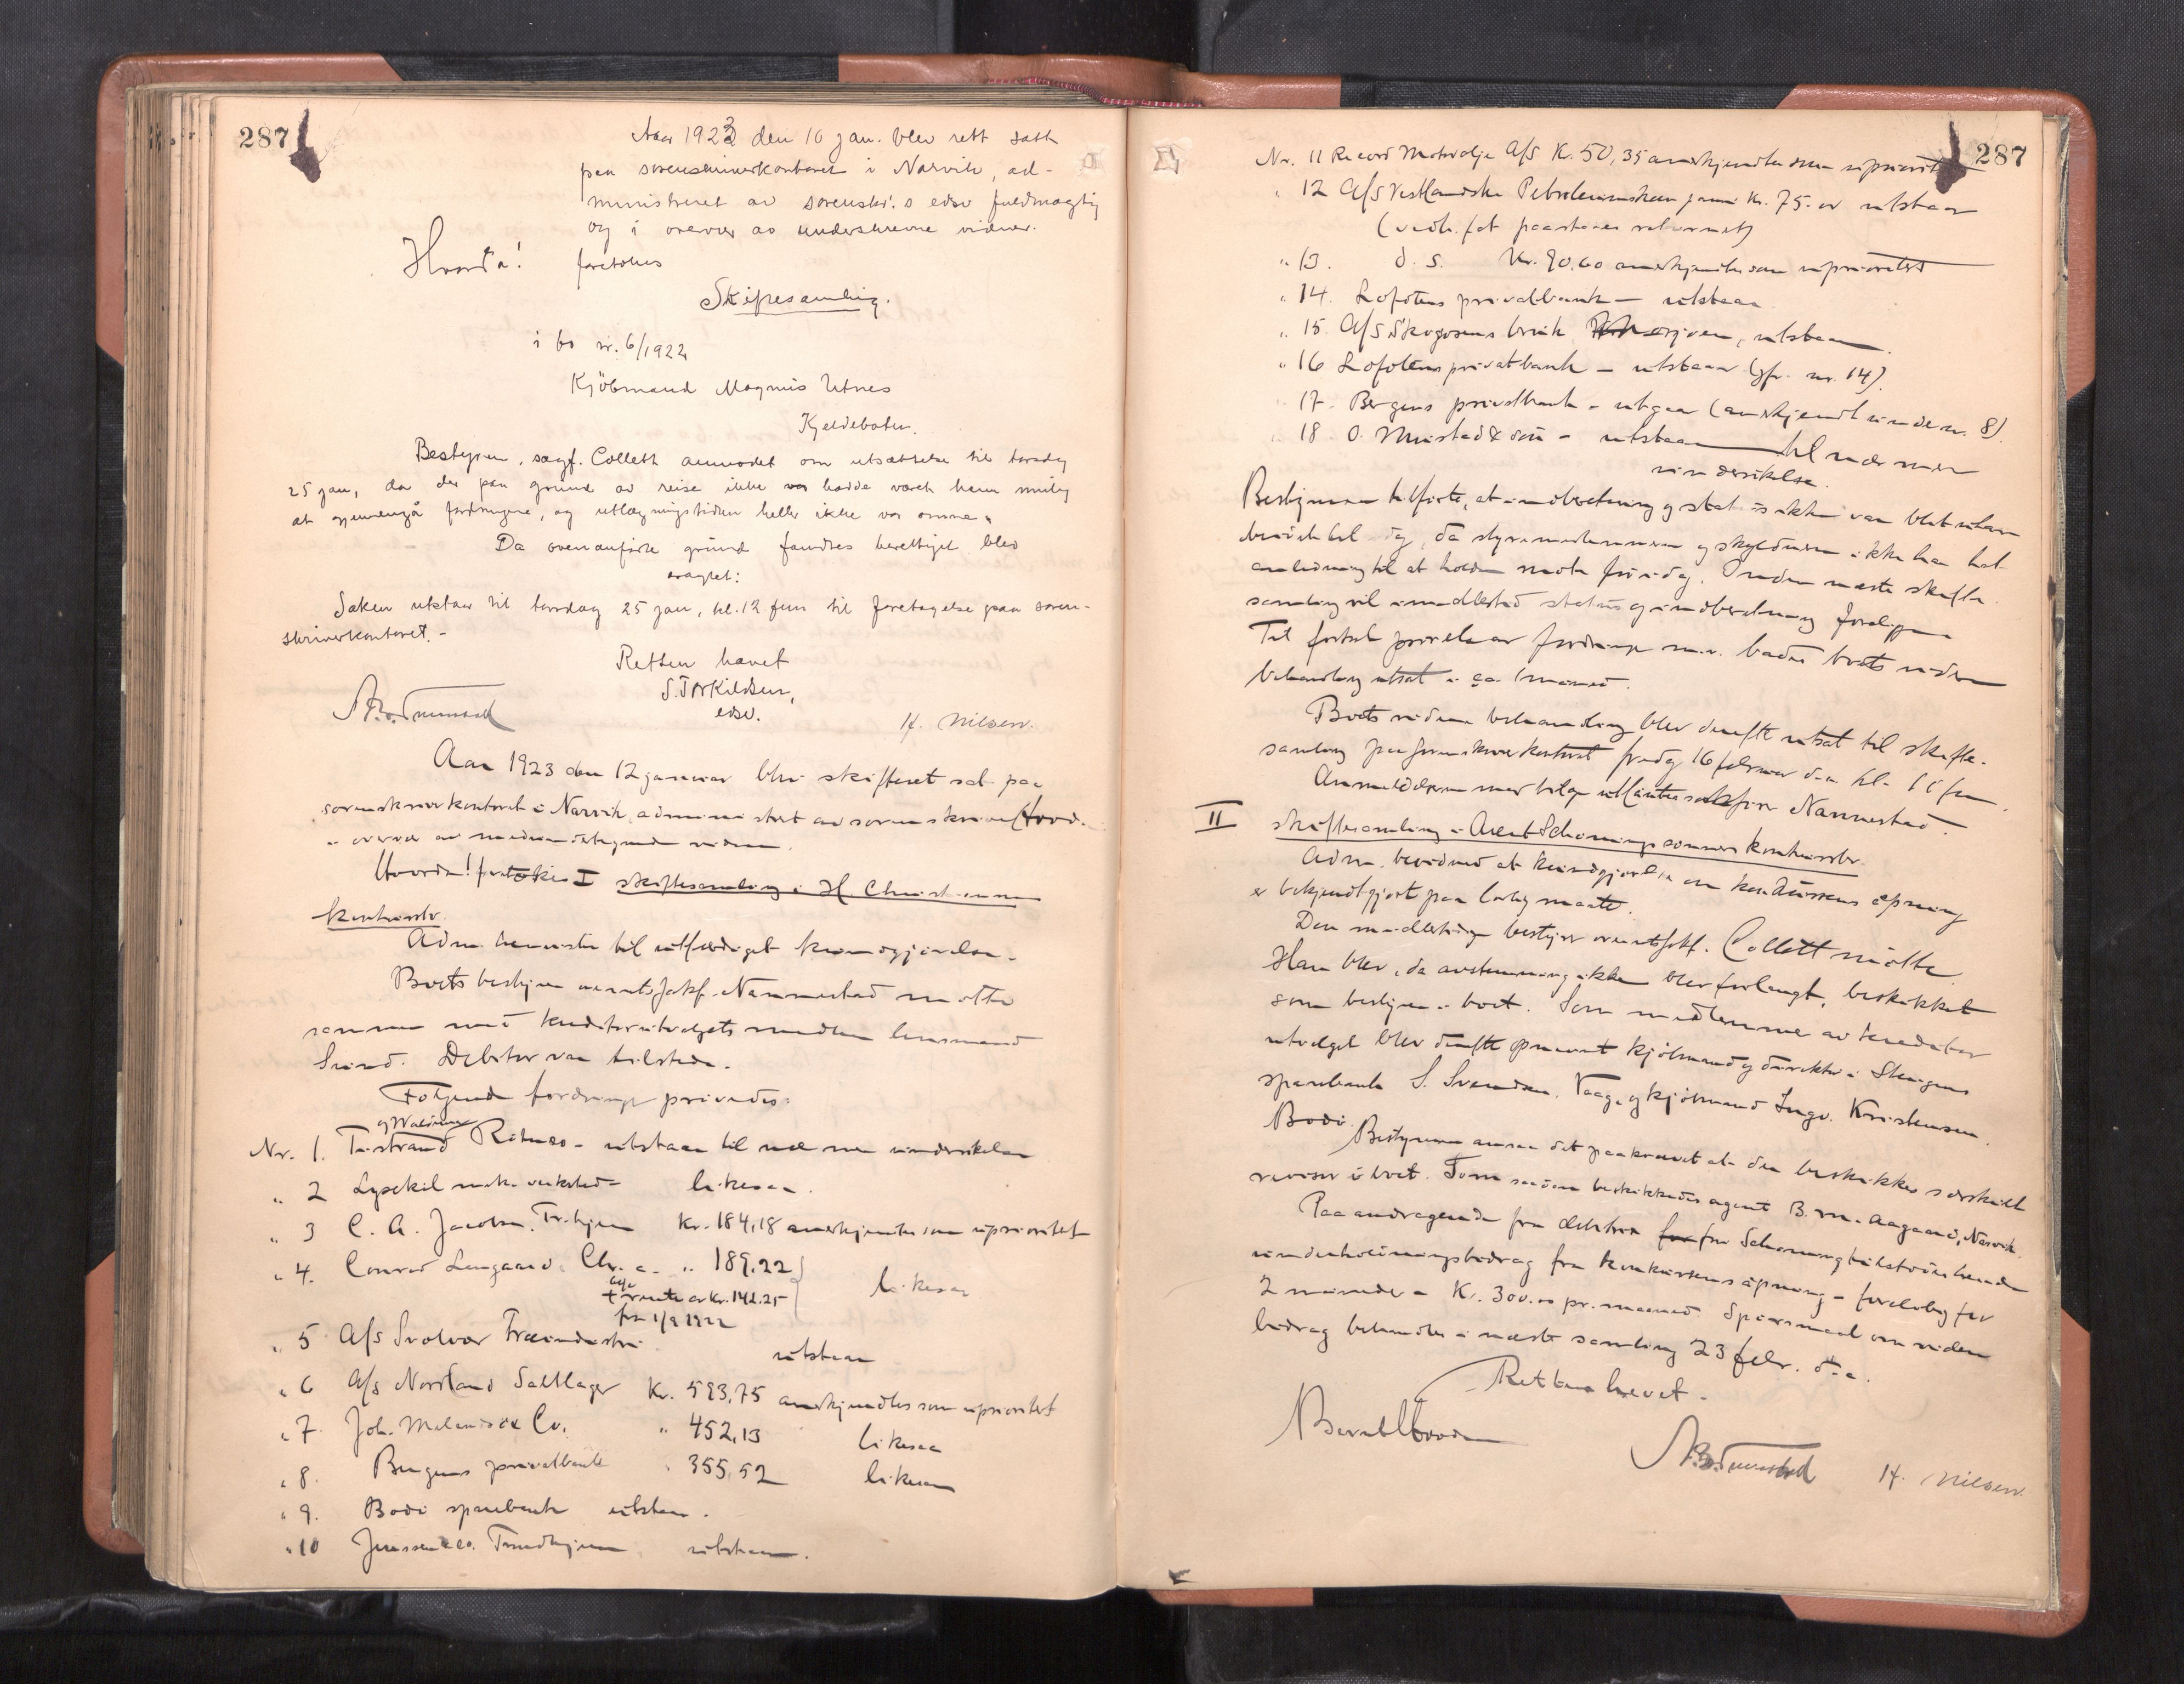 287
Aar 1923 den 10 jan. blev rett satt
paa sorenskriverkontoret i Narvik, ad-
ministreret av sorenskr.s edsv fuldmægtig
og i overvær av underskrevne vidner.
Hvorda! foretokes
Skiftesamling.
i bo nr. 6/1922
Kjöbmand Magnus Utnes
Kjeldebotn.
Bestyren, sagf. Collett anmodet om utsættelse til torsdag
25 jan, da det paa grund av reise ikke var hadde været ham mulig
at gjennemgå fordringene, og utlægningstiden heller ikke var omme.
Da ovenanførte grund fandtes berettiget blev
eragtet:
Saken utstaar til torsdag 25 jan, kl. 12 fm til foretagelse paa soren-
skriverkontoret. -
Retten hævet
S. Torkildsen,
edsv.
H. Nilsen.
Aar 1923 den 12 januar blev skifteret sat paa
sorenskriverkontoret i Narvik, administret av sorenskriver
i overvær av medundertegnede vidner.
Hvorda! foretokes I skiftesamling i H. Christensens
konkursbo.
Adm. henviste til utfærdiget kundgjørelse.
Boets bestyrer overretssakf. Nannestad møtte
sammen med kreditorutvalgets medlem lensmand
Sund. Debitor var tilstede.
Følgende fordringer prøvedes:
Nr. 1. Tistrand utstaar til nærmere undersøkelse
" 2 Lysekil mek. verksted - likesaa.
" 3 C. A. Jacobsen, Tr.hjem Kr. 184,18 anerkjendtes som uprioritet
" 4. Conrad Langaard, Chr.a. " 189,22
+ rente av kr. 142.25
fra 1/9 1922
likesaa
" 5 A/S Svolvær Træindustri utstaar
" 6 A/S Nordland Saltlager Kr. 593,75 anerkjendtes som uprioritet
" 7 Joh. & Co. " 452,13 likesaa
" 8. Bergens privatbank " 355,52 likesaa
" 9. Bodø sparebank utstaar.
" 10 Trondhjem utstaar.
287
Nr. 11 Record Motorolje A/S K. 50,35 anerkjendtes som uprioritet
" 12 A/S Vestlandske Petroleumskompani Kr. 75.- utstaar
(vedk. fat paastaaes returnert)
" 13. d. s. Kr. 90.60 anerkjendtes som uprioritet
" 14. Lofotens privatbank - utstaar
" 15. A/S Skogosens bruk Mosjøen, utstaar.
" 16 Lofotens privatbank - utstaar (jfr. nr. 14).
" 17. Bergens privatbank - utgaar (anerkjendt under nr. 8).
" 18. O. Mustad & Søn - utstaar til nærmere
undersøkelse.
Bestyreren tilførte, at indberetning og status ikke var blit utar-
beidet til idag, da styremedlemmene og skyldneren ikke har hat
anledning til at holde møte før idag. Inden næste skifte-
samling vil imidlertid status og indberetning foreligge.
Til fortsat prøvelse av fordringer m.v. bades boets videre
behandling utsat i ca 1 maaned.
Boets videre behandling blev derefter utsat til skifte-
samling paa sorenskriverkontoret fredag 16 februar d.a. kl. 11 fm.
Anmeldelsene med bilag utlaantes sakfører Nannestad.
II skiftesamling i Arent Schøning konkursbo.
Adm. bevidned at kundgjørelse om konkursens åpning
er bekjendtgjort paa lovlig maate.
Den midlertidige bestyrer overretssakf. Collett møtte.
Han blev, da avstemning ikke blev forlangt, beskikket
som bestyrer i boet. Som medlemmer av kreditor-
utvalget blev derefter opnævnt kjøbmand og direktør i Steigens
sparebank S. Svendsen, Vaag, og kjøbmand Ingv. Kristensen,
Bodø.
Bestyreren ansaa det paakrævet at der beskikkes særskilt
revisor i boet. Som saadan beskikkedes agent B. M. Aagaard, Narvik.
Paa andragende fra debitor for fru Schøning
underholdningsbidrag fra konkursens åpning - foreløbig for
2 maaneder - Kr. 300.00 pr. maaned. Spørsmaal om videre
bidrag behandles i næste samling 23 febr. d.a.
Retten hævet.
H. Nilsen.